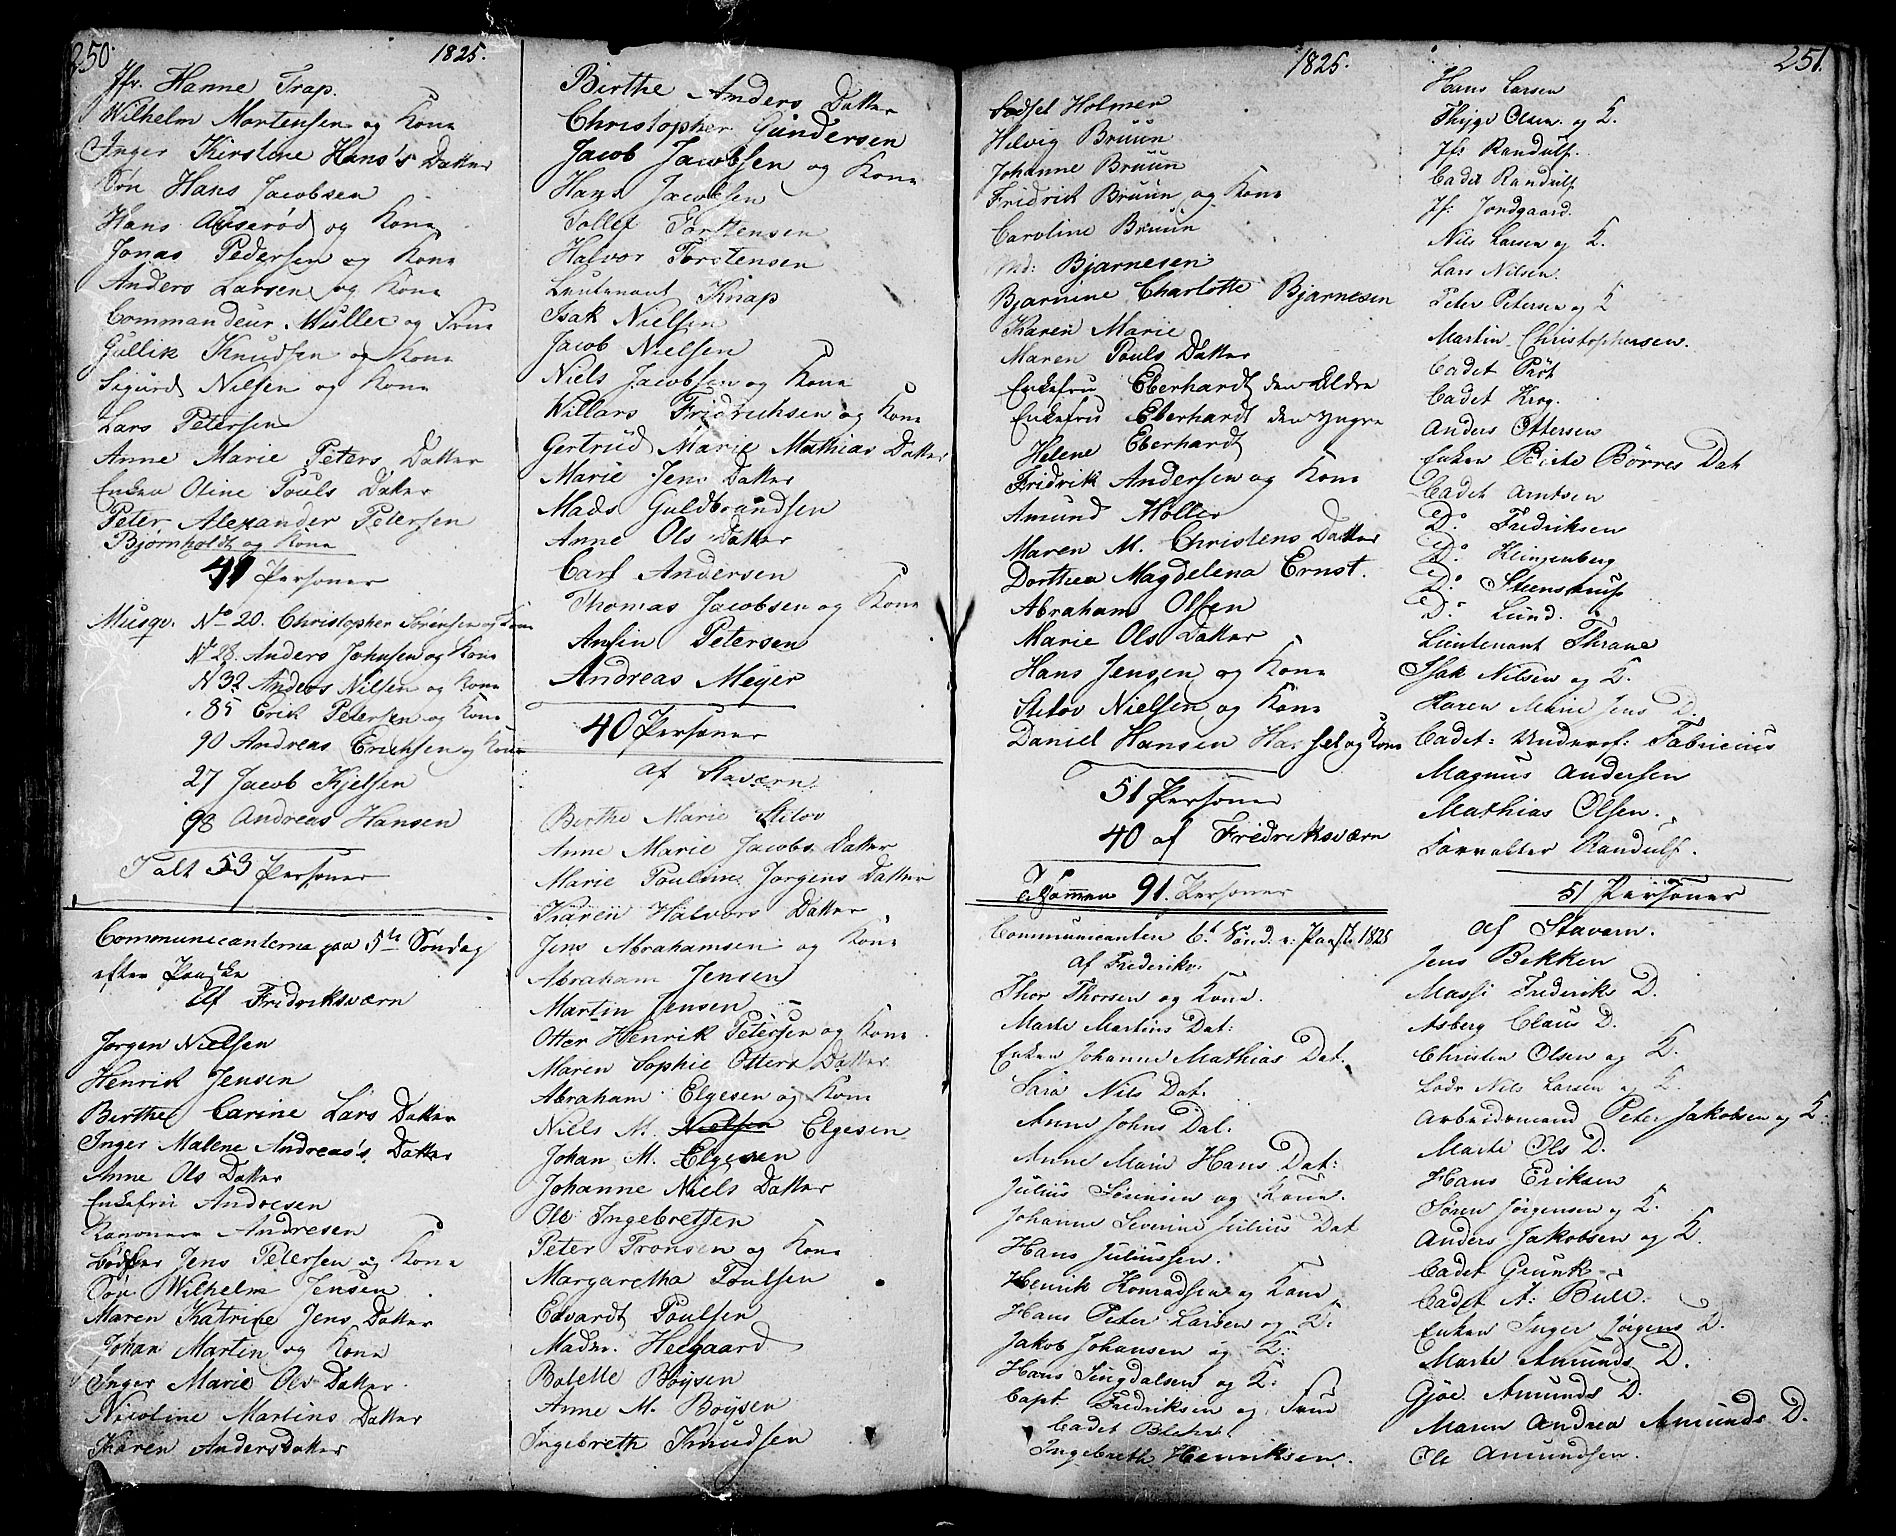 250.
1825.
Jfr. Hanne Trap.
Wilhelm Mortensen og Kone
Inger Kirstine Hans's Datter
Søn Hans Jacobsen
Hans Auserød og Kone
Jonas Pedersen og Kone
Anders Larsen og Kone
Commandeur Muller og Frue
Gullik Knudsen og Kone
Sigurd Nilsen og Kone
Lars Petersen
Anne Marie Peters Datter
Enken Oline Pouls Datter
Peter Alexander Petersen
Bjørnholdt og Kone
41 Personer
Musqv. No 20. Christopher Sørensen og Kone
No 28. Anders Johnsen og Kone
N 32 Anders Nilsen og Kone
85 Erik Petersen og Kone
90 Andreas Erichsen og Kone
27 Jacob Kjelsen
98 Andreas Hansen
Talt 53 Personer
Communicanterne paa 5te Søndag
efter Paaske
Af Fridriksværn
Jørgen Nielsen
Henrik Jensen
Berthe Carine Lars Datter
Inger Malene Andreas's Datter
Anne Ols Datter
Enkefru Andresen
Kanoneer Andresen
Bødker Jens Petersen og Kone
Søn Wilhelm Jensen
Maren Katrine Jens Datter
Johan Martin og Kone
Inger Marie Ols Datter
Nicoline Martins Datter
Karen Anders Datter
Birthe Anders Datter
Christopher Gundersen
Jacob Jacobsen og Kone
Hans Jacobsen
Tollef Torstensen
Halvor Torstensen
Leutenant Knap
Isak Nielsen
Jacob Nielsen
Niels Jacobsen og Kone
Willars Fridrichsen og Kone
Gertrud Marie Mathias Datter
Marie Jens Datter
Mads Guldbrandsen
Anne Ols Datter
Carl Andersen
Thomas Jacobsen og Kone
Anfin Petersen
Andreas Meyer
40 Personer
af Staværn
Berthe Marie Stilov
Anne Marie Jacobs Datter
Marie Pauline Jørgens Datter
Karen Halvors Datter
Jens Abrahamsen og Kone
Abraham Jensen
Martin Jensen
Otter Henrik Petersen og Kone
Maren Sophie Otters Datter
Abraham Elgesen og Kone
Niels M. Nielsen Elgesen
Johan M. Elgesen
Johanne Niels Datter
Ole Ingebretsen
Peter Tronsen og Kone
Margaretha Poulsen
Edvardt Poulsen
Madm. Helgaard
Bolette Boysen
Anne M. Boysen
Ingebreth Knudsen
1825.
251.
Sødsel Holmer
Helvig Bruun
Johanne Bruun
Fridrick Bruun og Kone
Caroline Bruun
Md: Bjarnesen
Bjarnine Charlotte Bjarnesen
Karen Marie
Maren Pouls Datter
Enkefru Eberhardt den Eldre
Enkefru Eberhardt den yngre
Helene Eberhardt
Fridrik Andersen og Kone
Amund Møller
Maren M. Christens Datter
Dorthea Magdelena Ernst.
Abraham Olsen
Marie Ols Datter
Hans Jensen og Kone
Stilov Nielsen og Kone
Daniel Hansen Hassel og Kone
51 Personer
40 af Fredriksværn
Tilsammen 91. Personer
Communicanter 6t Sønd. e: Paaske 1825
af Frederiksv:
Thor Thorsen og Kone.
Marte Martins Dat:
Enken Johanne Mathias Dat.
Sara Nils Dat.
Anne Johns Dat.
Anne Marie Hans Dat:
Julius Sørensen og Kone.
Johanne Severine Julius Dat
Hans Juliussen.
Henrik Konradsen og Kone
Hans Peter Larsen og K:
Jakob Johansen og K:
Hans Lingdalsen og K:
Capt. Fredriksen og Frue
Cadet Blehr.
Ingebreth Henriksen.
Hans Larsen
Thyge Olsen og K.
Jf: Randulf.
Cadet Randulf
Jf: Jordgaard.
Nils Larsen og K.
Lars Nilsen
Peter Petersen og K
Martin Christophersen.
Cadet Pøst
Cadet Krog.
Anders Ottersen
Enken Birte Børres Dat
Cadet Arntsen
Do. Fredriksen
Do. Klingenberg
Do. Steenstrup
Do. Lund.
Lieutenant Thrane
Isak Nilsen og K.
Karen Marie Jens D.
Cadet: Underof: Fabricius
Magnus Andersen
Mathias Olsen.
Forvalter Randulf.
51 Personer
af Stavern.
Jens Bekken
Massi Frederiks D.
Asberg Claus D.
Christen Olsen og K.
Lods Nils Larsen og K.
Arbeidsmand Peter Jakobsen og K:
Marte Ols D.
Hans Eriksen
Søren Jørgensen og K.
Anders Jakobsen og K.
Cadet Grunk
Cadet A: Bull.
Enken Inger Jørgens D.
Marte Amunds D.
Gjøe Amunds D.
Maren Andrea Amunds D.
Ole Amundsen.